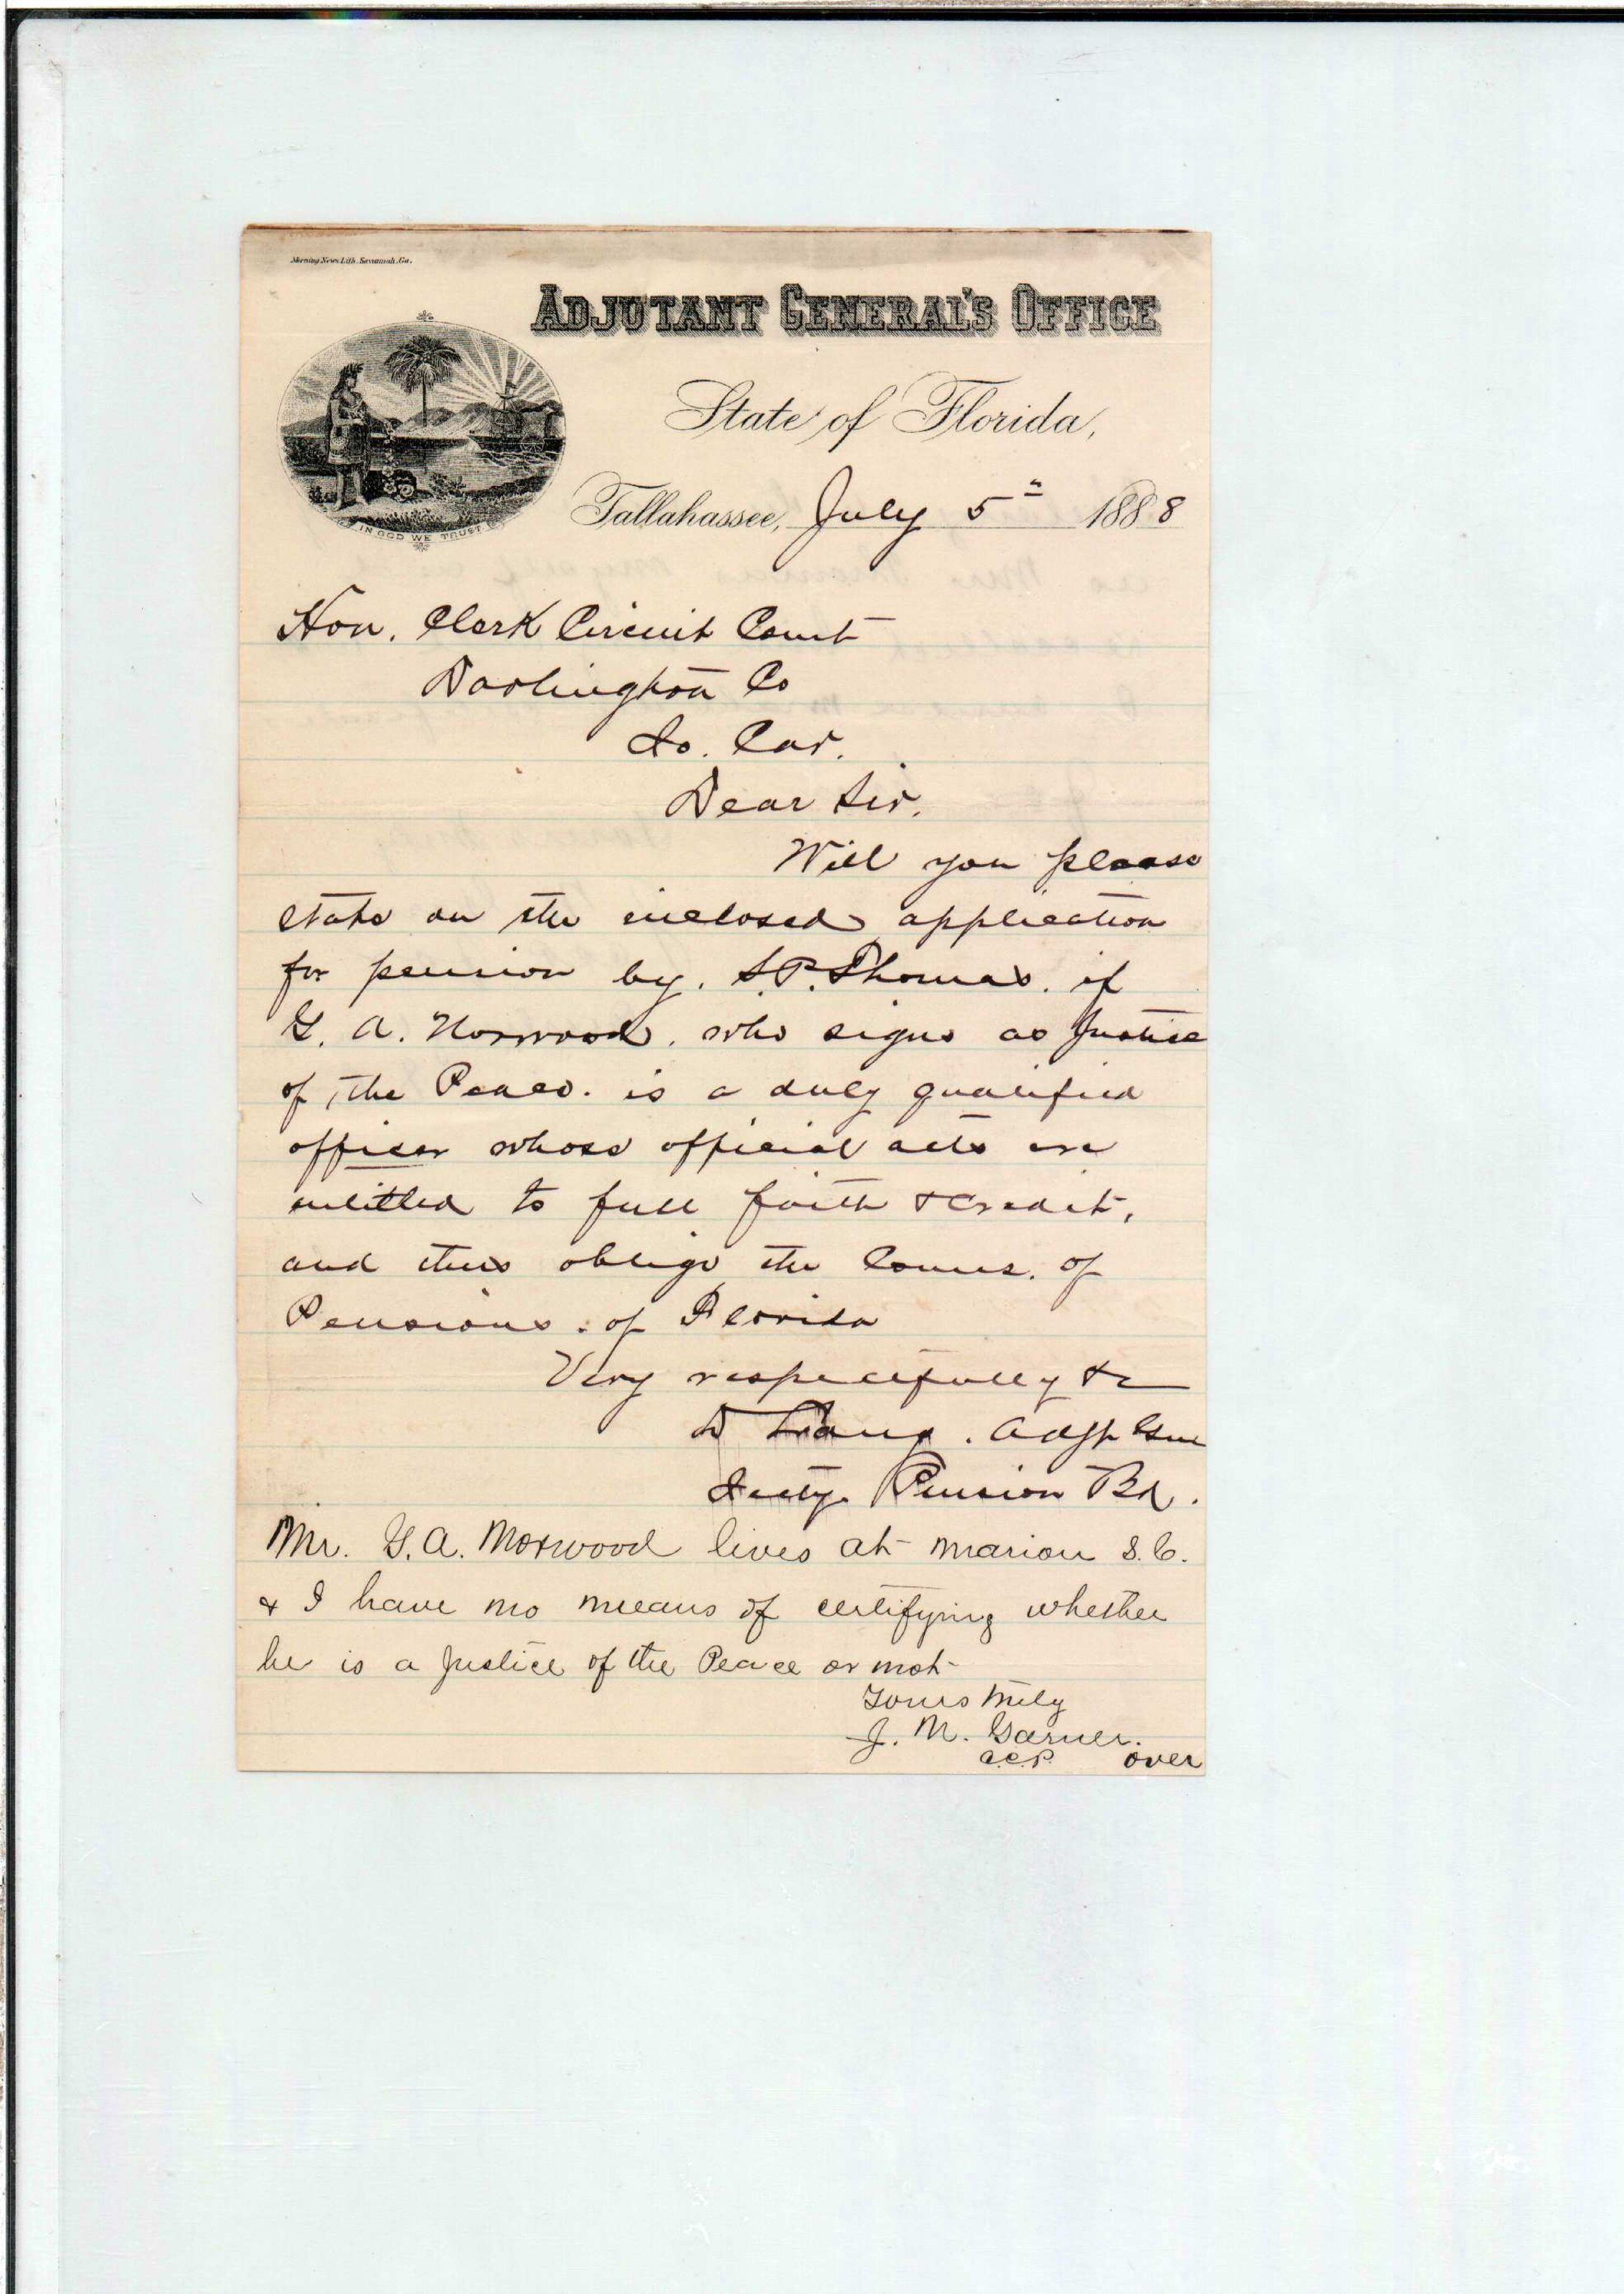 Morning News Lith. Savannah, Ga.
ADJUTANT GENERAL'S OFFICE
State of Florida,
Tallahassee, July 5" 1888
IN GOD WE TRUST
Hon. Clerk Circuit Court
Darlington Co
So. Car.
Dear Sir,
Will you please
state on the inclosed application
for pension by. S.P. Thomas. if
G. A. Norwood. who signs as Justice
of the Peace. is a duly qualified
officer whose official acts are
entitled to full faith & credit,
and thus oblige the Comrs. of
Pensions. of Florida
Very respectfully &c
D Lang. Adjt Gen
Secty. Pension Bd.
Mr. G. A. Norwood lives at Marion S.C.
& I have no means of certifying whether
he is a Justice of the Peace or not
Yours truly
J. M. Garner.
over